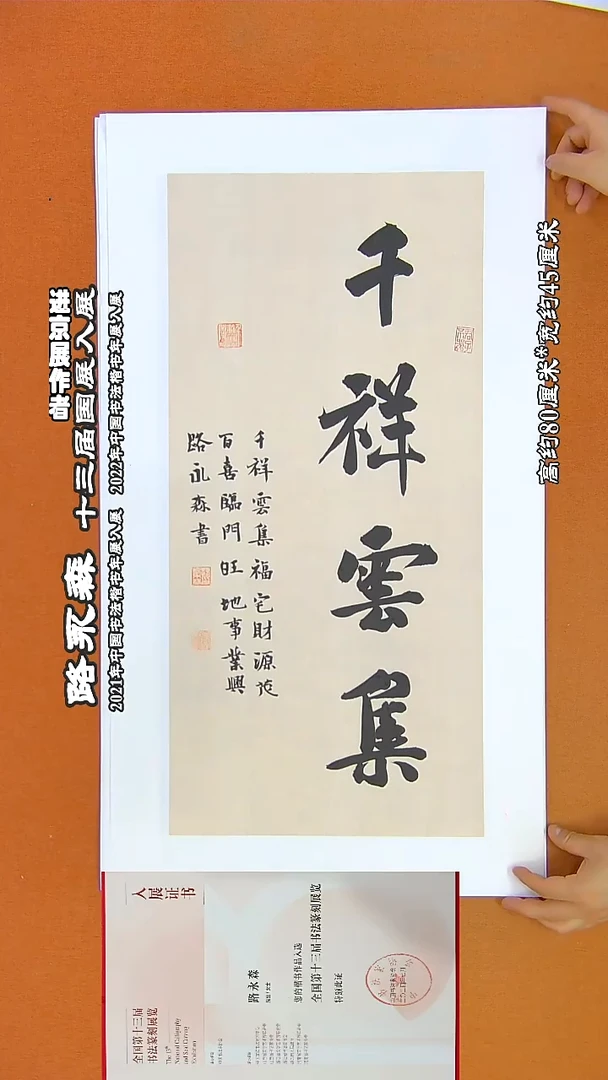 千祥雲集
千祥雲集福宅財源茂
百喜臨門旺地事業興
路永森書
路永森
十三届国展入展
2021年中国书法楷书年展入展
2022年中国书法楷书年展入展
高约80厘米*宽约45厘米
入展证书
全国第十三届
书法篆刻展览
The 13th
National Calligraphy
and Seal Carving
Exhibition
路永森
您的楷书作品入选
全国第十三届书法篆刻展览
特颁此证